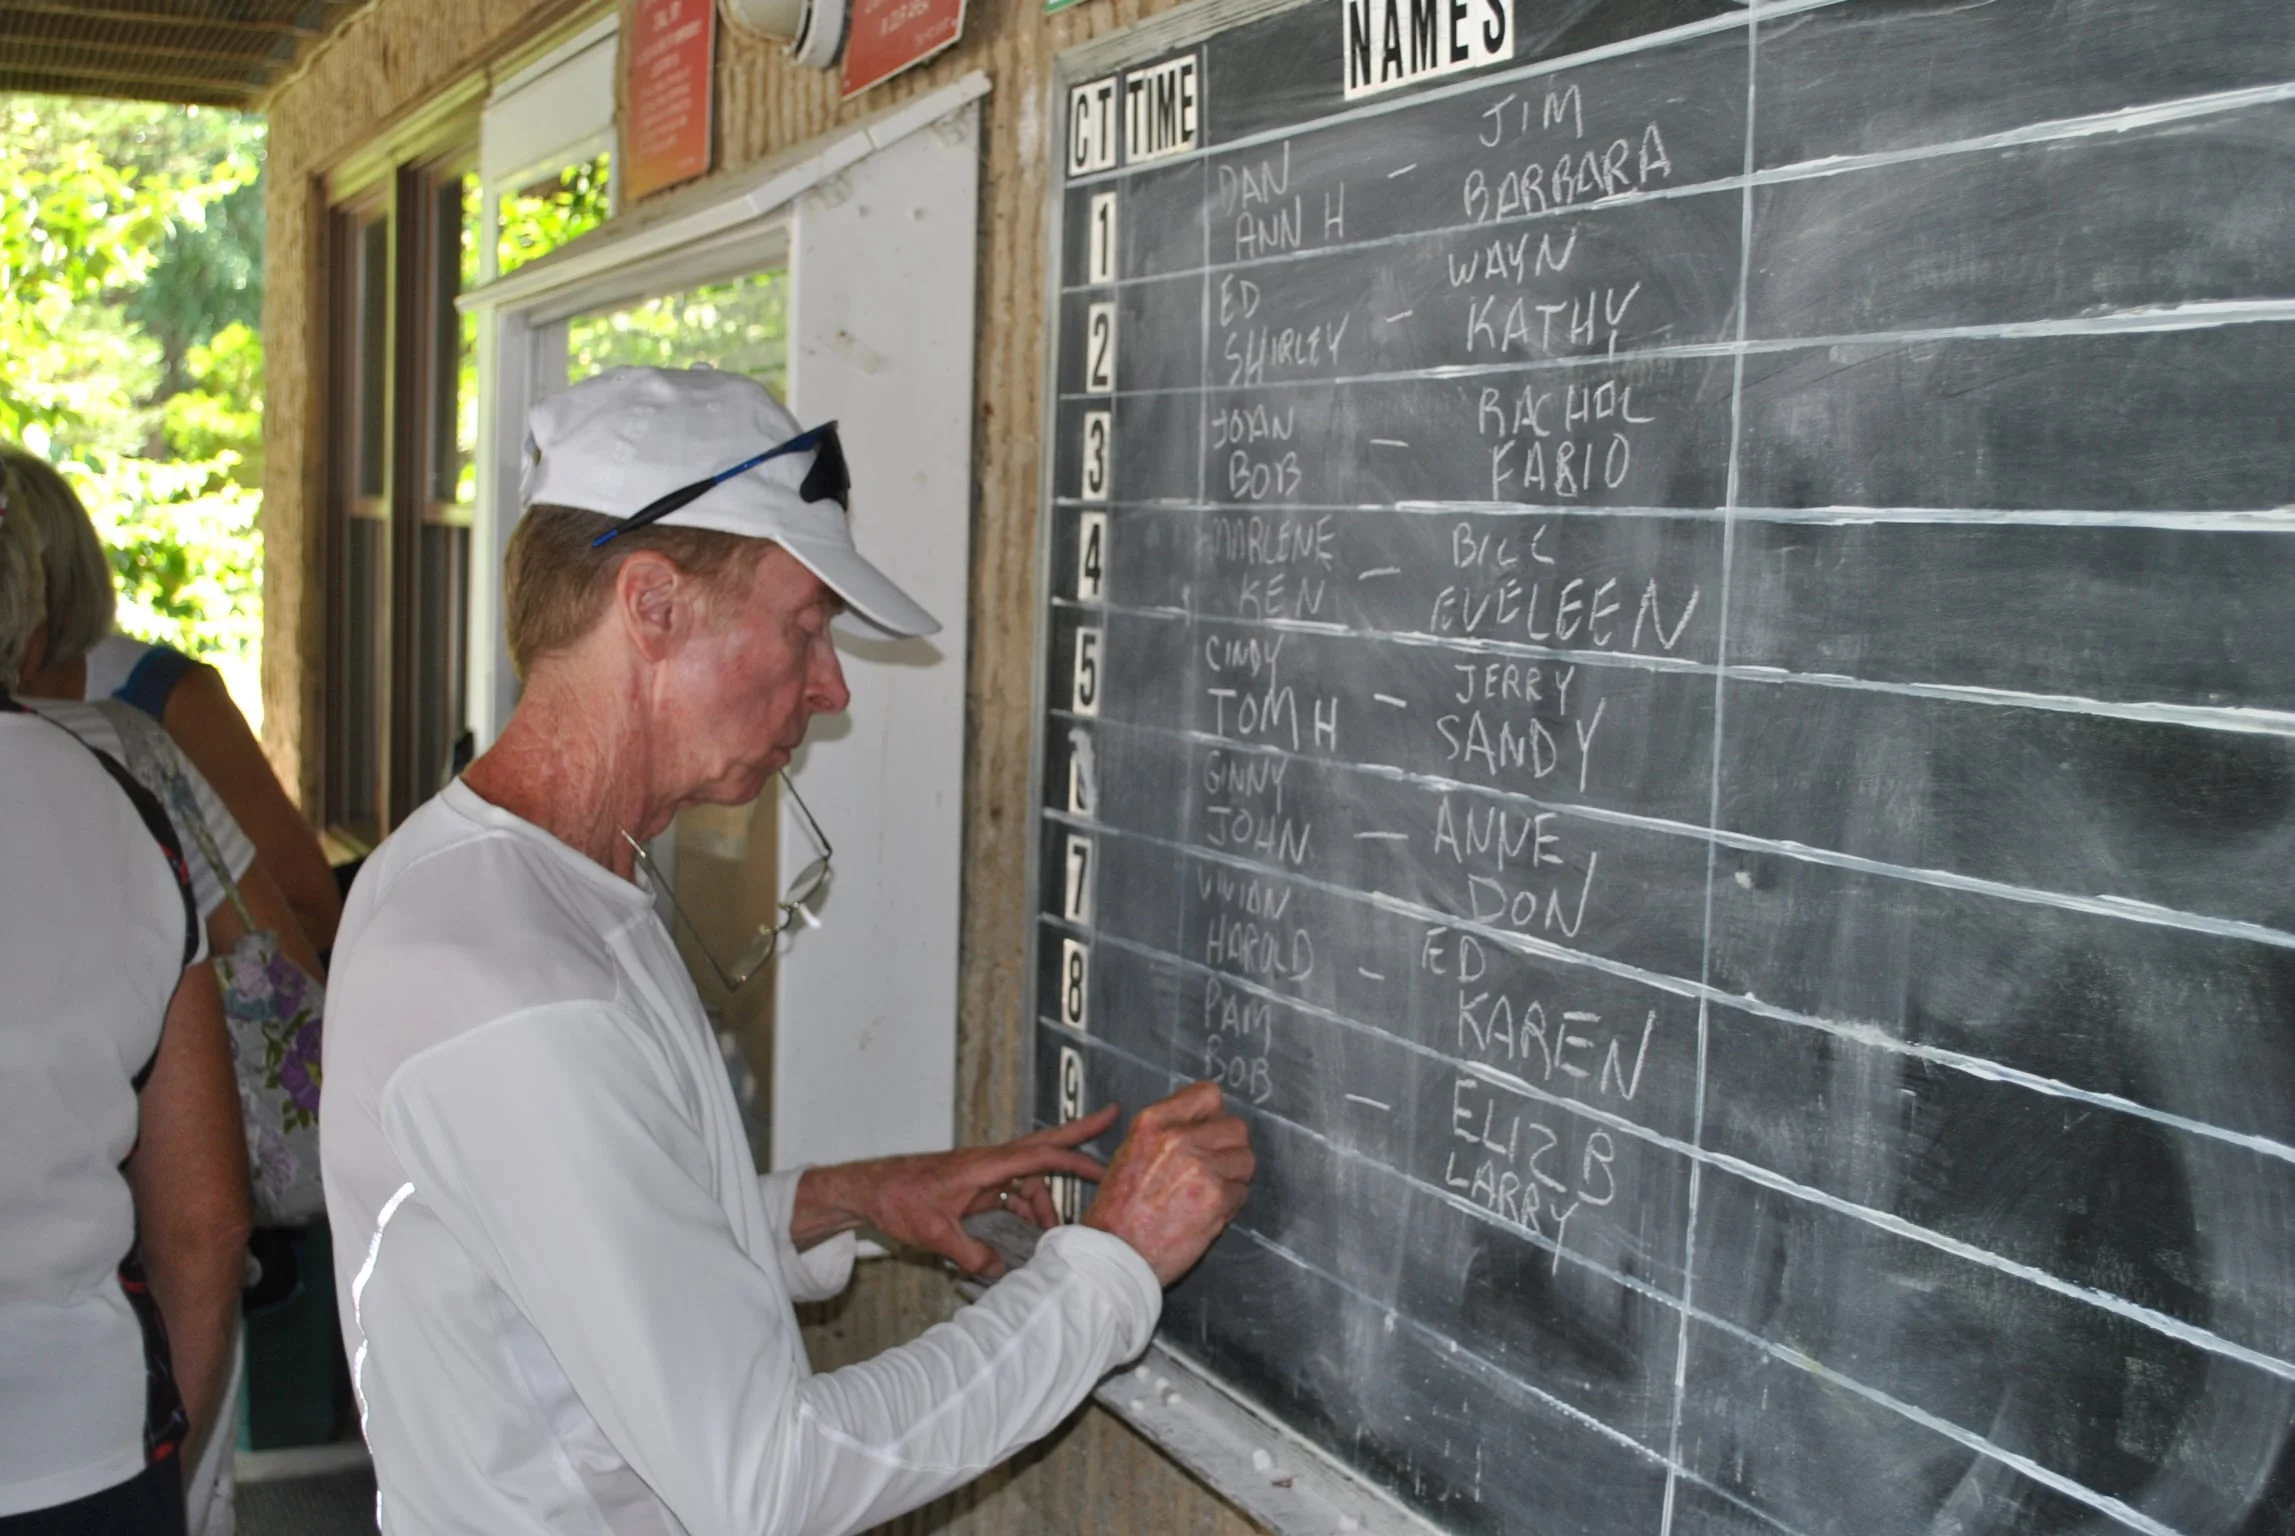 NAMES
CT TIME
DAN JIM
1 ANN H - BARBARA
ED WAYN
2 SHIRLEY - KATHY
JOAN RACHOL
3 BOB - FABIO
4 MARLENE BILL
KEN - EVELEEN
5 CINDY JERRY
TOM H - SANDY
GINNY
JOHN - ANNE
7 VIVIAN DON
HAROLD - ED
8 PAM KAREN
BOB - ELIZ B
9 LARRY